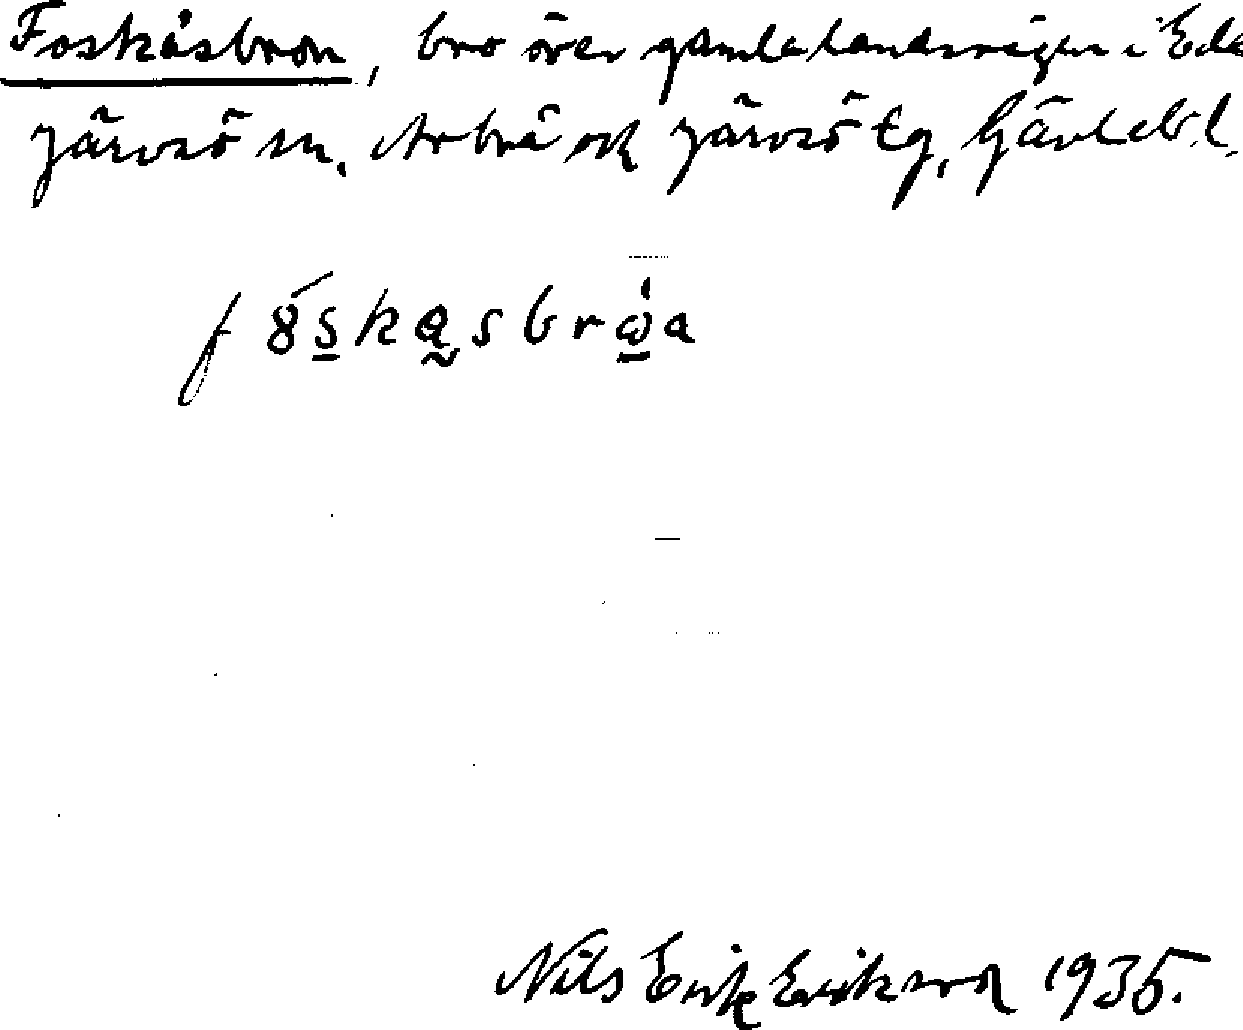 Foskåsbron, bro över gamla landsvägen i Ede
Järvsö sn. Arbrå och Järvsö tg, Gävleb.l.
Nils Erik Erikson 1935.